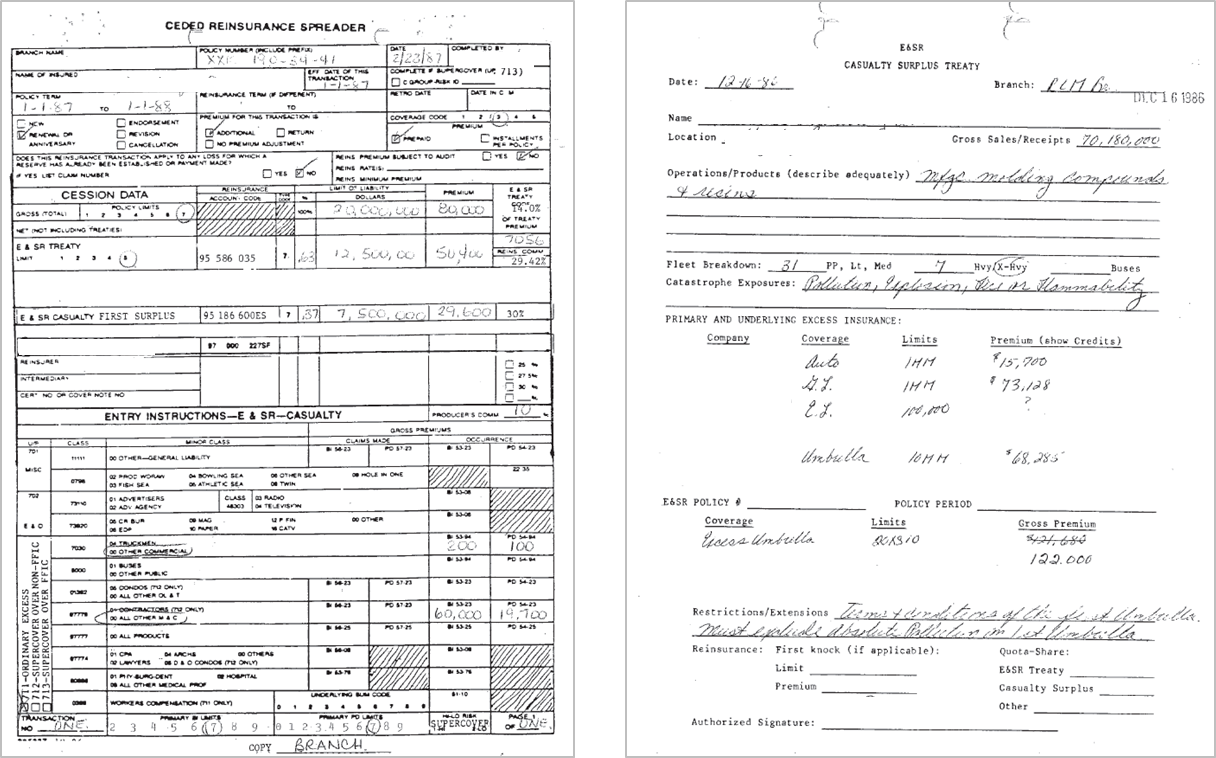 CEDED REINSURANCE SPREADER
BRANCH NAME
POLICY NUMBER (INCLUDE PREFIX)
DATE
2/23/87
COMPLETED BY
NAME OF INSURED
EFF DATE OF THIS TRANSACTION
1-1-87
COMPLETE IF SUPERCOVER (UP, 713)
C GROUP-RISK ID
POLICY TERM
1-1-87 TO 1-1-88
REINSURANCE TERM (IF DIFFERENT)
TO
RETRO DATE
DATE IN C M
NEW
ENDORSEMENT
RENEWAL OR ANNIVERSARY
REVISION
CANCELLATION
PREMIUM FOR THIS TRANSACTION IS
ADDITIONAL
RETURN
NO PREMIUM ADJUSTMENT
COVERAGE CODE 1 2 3 4 5
PREMIUM
PREPAID
INSTALLMENTS PER POLICY
DOES THIS REINSURANCE TRANSACTION APPLY TO ANY LOSS FOR WHICH A
RESERVE HAS ALREADY BEEN ESTABLISHED OR PAYMENT MADE?
IF YES LIST CLAIM NUMBER
YES NO
REINS PREMIUM SUBJECT TO AUDIT YES NO
REINS RATE(S)
REINS MINIMUM PREMIUM
CESSION DATA
REINSURANCE
ACCOUNT CODE
LIMIT OF LIABILITY
% DOLLARS
PREMIUM
E & SR TREATY
GROSS (TOTAL) POLICY LIMITS 1 2 3 4 5 6 7
100% 20,000,000 80,000 14.0%
OF TREATY PREMIUM
NET (NOT INCLUDING TREATIES)
7056
E & SR TREATY
LIMIT 1 2 3 4 5
95 586 035 7. .63 12,500,00 50,400
REINS COMM
29.42%
E & SR CASUALTY FIRST SURPLUS 95 186 600ES 7 .37 7,500,000 29,600 30%
87 000 227SF
REINSURER
INTERMEDIARY
CERT NO OR COVER NOTE NO
25 %
27.5%
30 %
%
ENTRY INSTRUCTIONS—E & SR—CASUALTY
PRODUCER'S COMM 10 %
GROSS PREMIUMS
U/P CLASS MINOR CLASS CLAIMS MADE OCCURRENCE
701
MISC
11111 00 OTHER—GENERAL LIABILITY
BI 56-23 PD 57-23 BI 53-23 PD 54-23
03 FISH SEA 04 BOWLING SEA 05 ATHLETIC SEA 06 OTHER SEA 08 TWIN 09 HOLE IN ONE
22 35
702
E & O
73110 01 ADVERTISERS 02 ADV AGENCY CLASS 48303 03 RADIO 04 TELEVISION
73820 08 CR BUR 08 EDP 09 MAG 10 PAPER 12 P FIN 16 CATV 00 OTHER
7030 04 TRUCKMEN
00 OTHER COMMERCIAL
BI 53-94 PD 54-94
200 100
01 BUSES
00 OTHER PUBLIC
05 CONDOS (712 ONLY)
00 ALL OTHER OL & T
01 CONTRACTORS (712 ONLY)
00 ALL OTHER M & C
60,000 19,700
97777 00 ALL PRODUCTS
97774 01 CPA 02 LAWYERS 04 ARCHS 05 D & O CONDOS (712 ONLY) 00 OTHERS
01 PHY-SURG-DENT 02 HOSPITAL
09 ALL OTHER MEDICAL PROF
WORKERS COMPENSATION (711 ONLY)
UNDERLYING SUM CODE
0 1 2 3 4 5 6 7 8 9
81-10
711-ORDINARY EXCESS
712-SUPERCOVER OVER NON-FFIC
713-SUPERCOVER OVER FFIC
TRANSACTION NO ONE.
PRIMARY BI LIMITS
2 3 4 5 6 7 8 9
PRIMARY PD LIMITS
0 1 2 3 4 5 6 7 8 9
HI-LO RISK
SUPERCOVER
PAGE 1
OF ONE.
COPY BRANCH.
E&SR
CASUALTY SURPLUS TREATY
Date: 12-16-86
Branch:
DEC 16 1986
Name
Location
Gross Sales/Receipts 70,180,000
Operations/Products (describe adequately) Mfgs molding compounds
& resins
Fleet Breakdown: 31 PP, Lt, Med 7 Hvy/X-Hvy Buses
Catastrophe Exposures: Pollution, Explosion, Fire or Flammability
PRIMARY AND UNDERLYING EXCESS INSURANCE:
Company Coverage Limits Premium (show Credits)
Auto 1MM $15,700
G.L. 1MM $73,128
E.L. 100,000 ?
Umbrella 10MM $68,285
E&SR POLICY # POLICY PERIOD
Coverage Limits Gross Premium
Excess Umbrella $121,680
122.000
Restrictions/Extensions Terms & conditions of the 1st Umbrella.
Must exclude absolute Pollution on 1st Umbrella
Reinsurance: First knock (if applicable): Quota-Share:
Limit E&SR Treaty
Premium Casualty Surplus
Other
Authorized Signature: